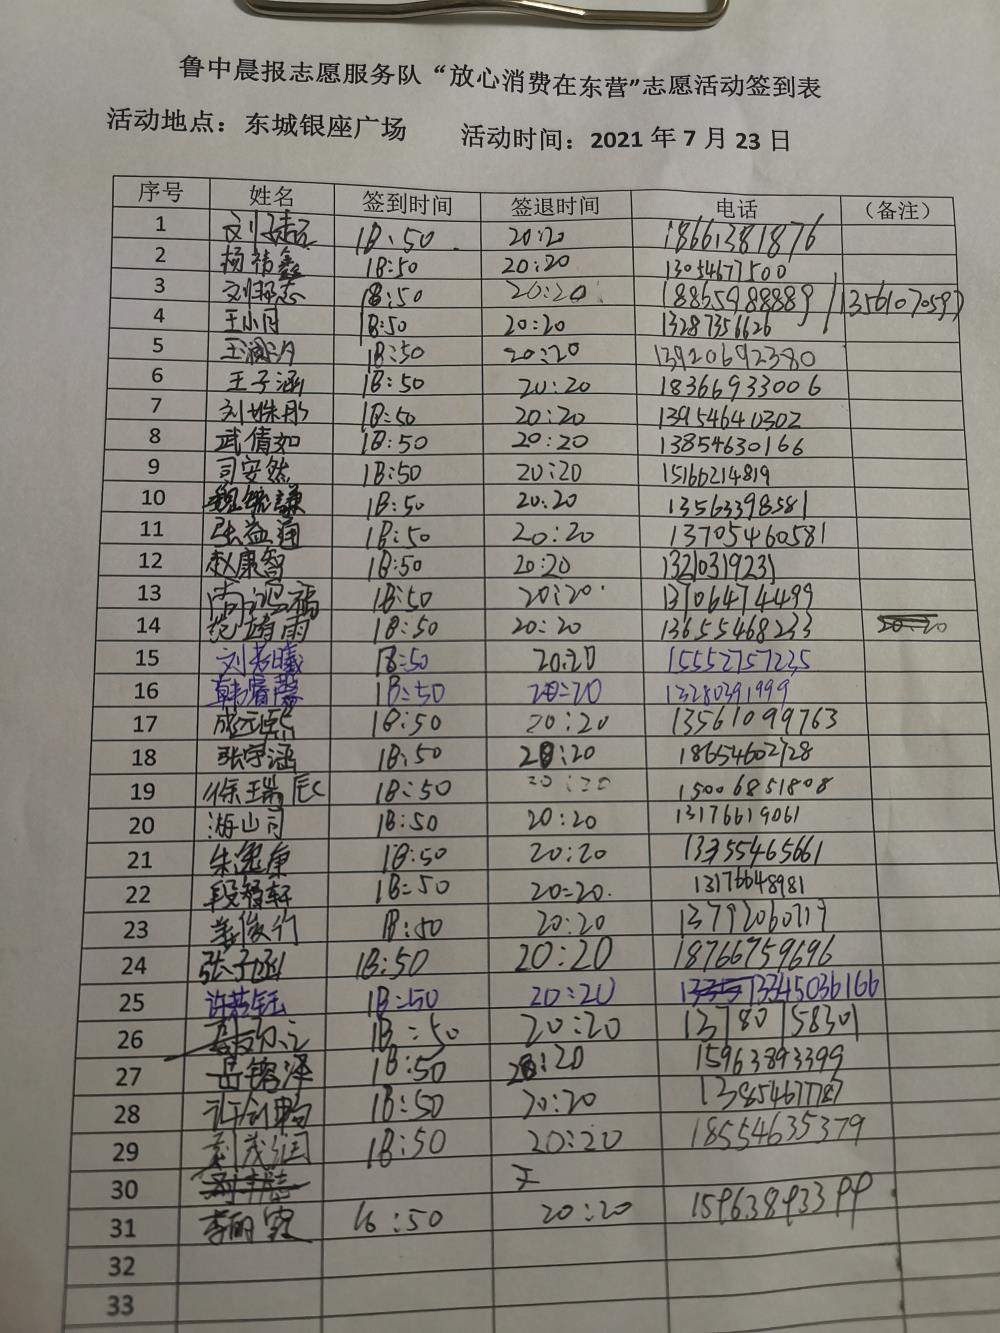 鲁中晨报志愿服务队“放心消费在东营”志愿活动签到表
活动地点：东城银座广场 活动时间：2021年7月23日
序号 姓名 签到时间 签退时间 电话 （备注）
1 18:50 20:20 18661381876
2 杨祎鑫 18:50 20:20 13054677500
3 18:50 20:20 18865988889/13561070597
4 王小月 18:50 20:20 13287356626
5 18:50 20:20 13920692380
6 王子涵 18:50 20:20 18366933006
7 刘姝彤 18:50 20:20 13954640302
8 武倩如 18:50 20:20 13854630166
9 司安然 18:50 20:20 15166214819
10 18:50 20:20 13563398581
11 张益通 18:50 20:20 13705460581
12 赵康智 18:50 20:20 13210319231
13 18:50 20:20 13706474499
14 18:50 20:20 13655468233
15 18:50 20:20 15552757235
16 韩睿馨 18:50 20:20 13280391999
17 成元熙 18:50 20:20 13561099763
18 张宇涵 18:50 20:20 18654602728
19 徐瑞辰 18:50 20:20 15006851808
20 海山司 18:50 20:20 13176619061
21 朱逸康 18:50 20:20 13355465661
22 段程轩 18:50 20:20 13176648981
23 姜俊行 18:50 20:20 13792060719
24 张子涵 18:50 20:20 18766759696
25 许芸钰 18:50 20:20 13345036166
26 18:50 20:20 13780758301
27 岳镕泽 18:50 20:20 15963893399
28 18:50 20:20 13854677787
29 18:50 20:20 18554635379
30
31 李丽霞 16:50 20:20 15963893399
32
33